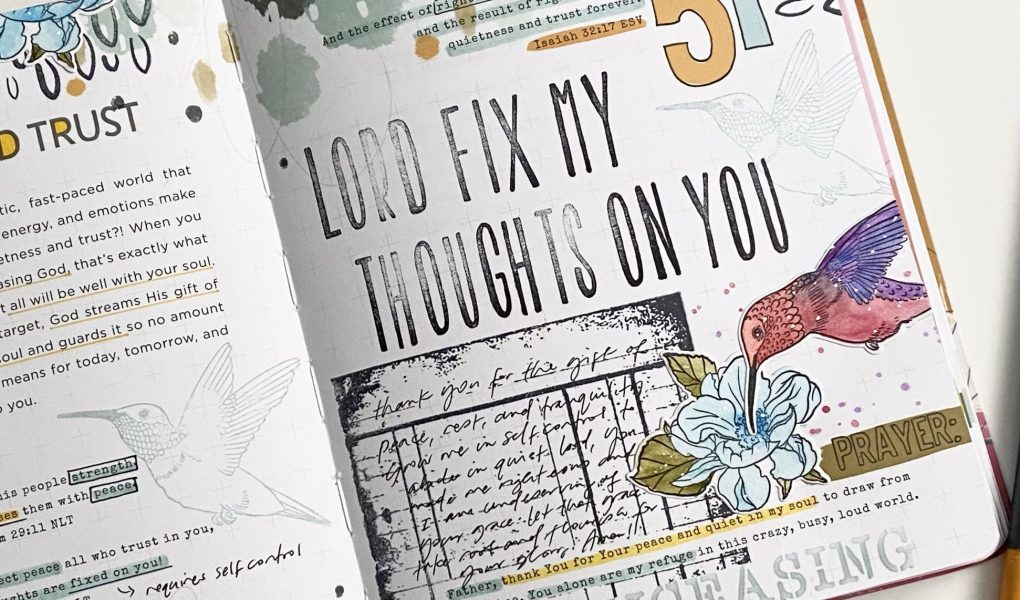 D TRUST
tic, fast-paced world that
energy, and emotions make
etness and trust?! When you
asing God, that's exactly what
t all will be well with your soul.
target, God streams His gift of
soul and guards it so no amount
means for today, tomorrow, and
o you.
his people strength.
ses them with peace.
m 29:11 NLT
ect peace all who trust in you,
ughts are fixed on you!
LT
requires self control
And the effect of right
and the result of
quietness and trust forever.
Isaiah 32:17 ESV
51
LORD FIX MY
THOUGHTS ON YOU
thank you for this gift of
peace, rest, and tranquility
grow me in self control to
abide in quiet. Lord, you
made me right
I am undeserving of
your grace. let that grace
take root and
your glory. Amen!!
PRAYER:
Father, thank You for Your peace and quiet in my soul to draw from
You alone are my refuge in this crazy, busy, loud world.
EASING